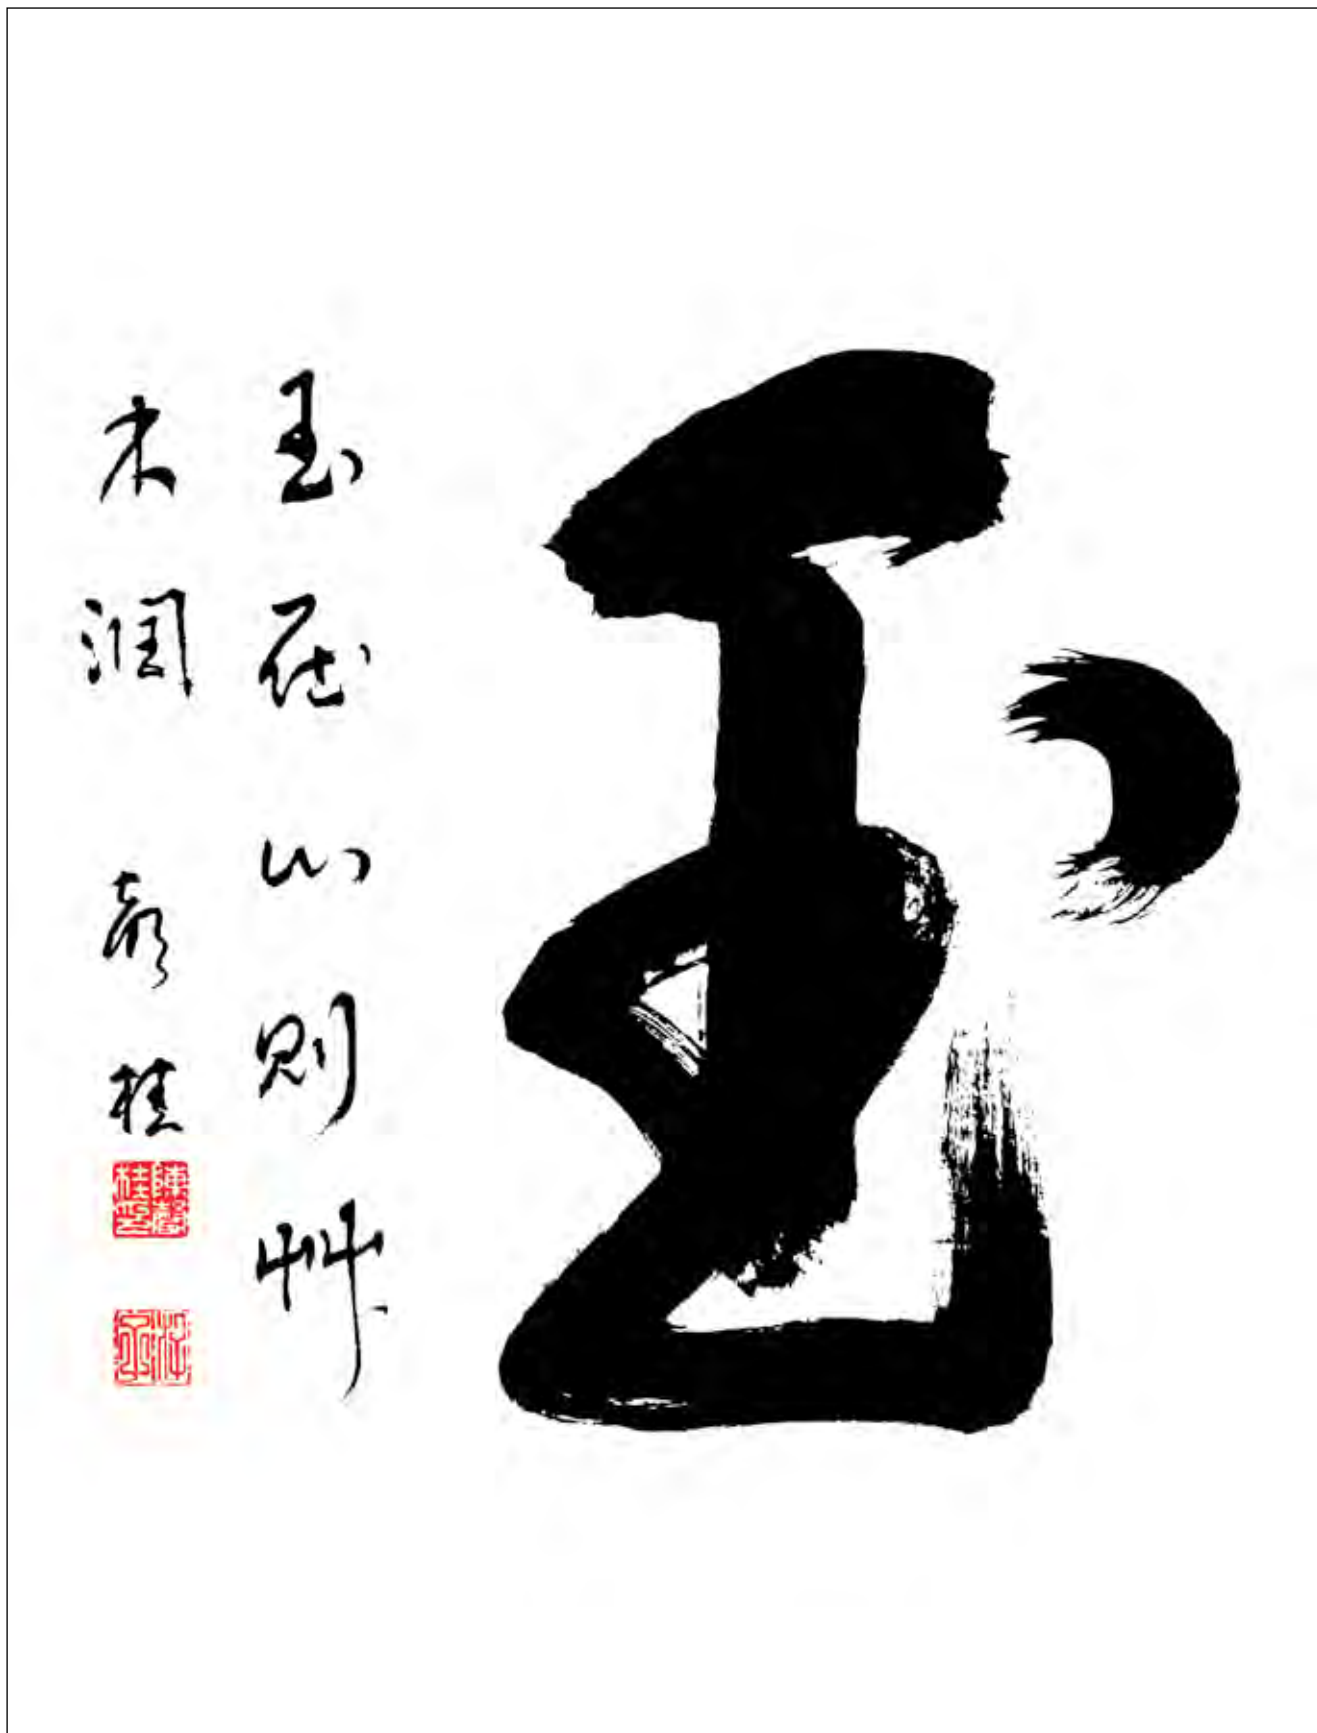 玉
玉在山則艸
木潤 馨桂